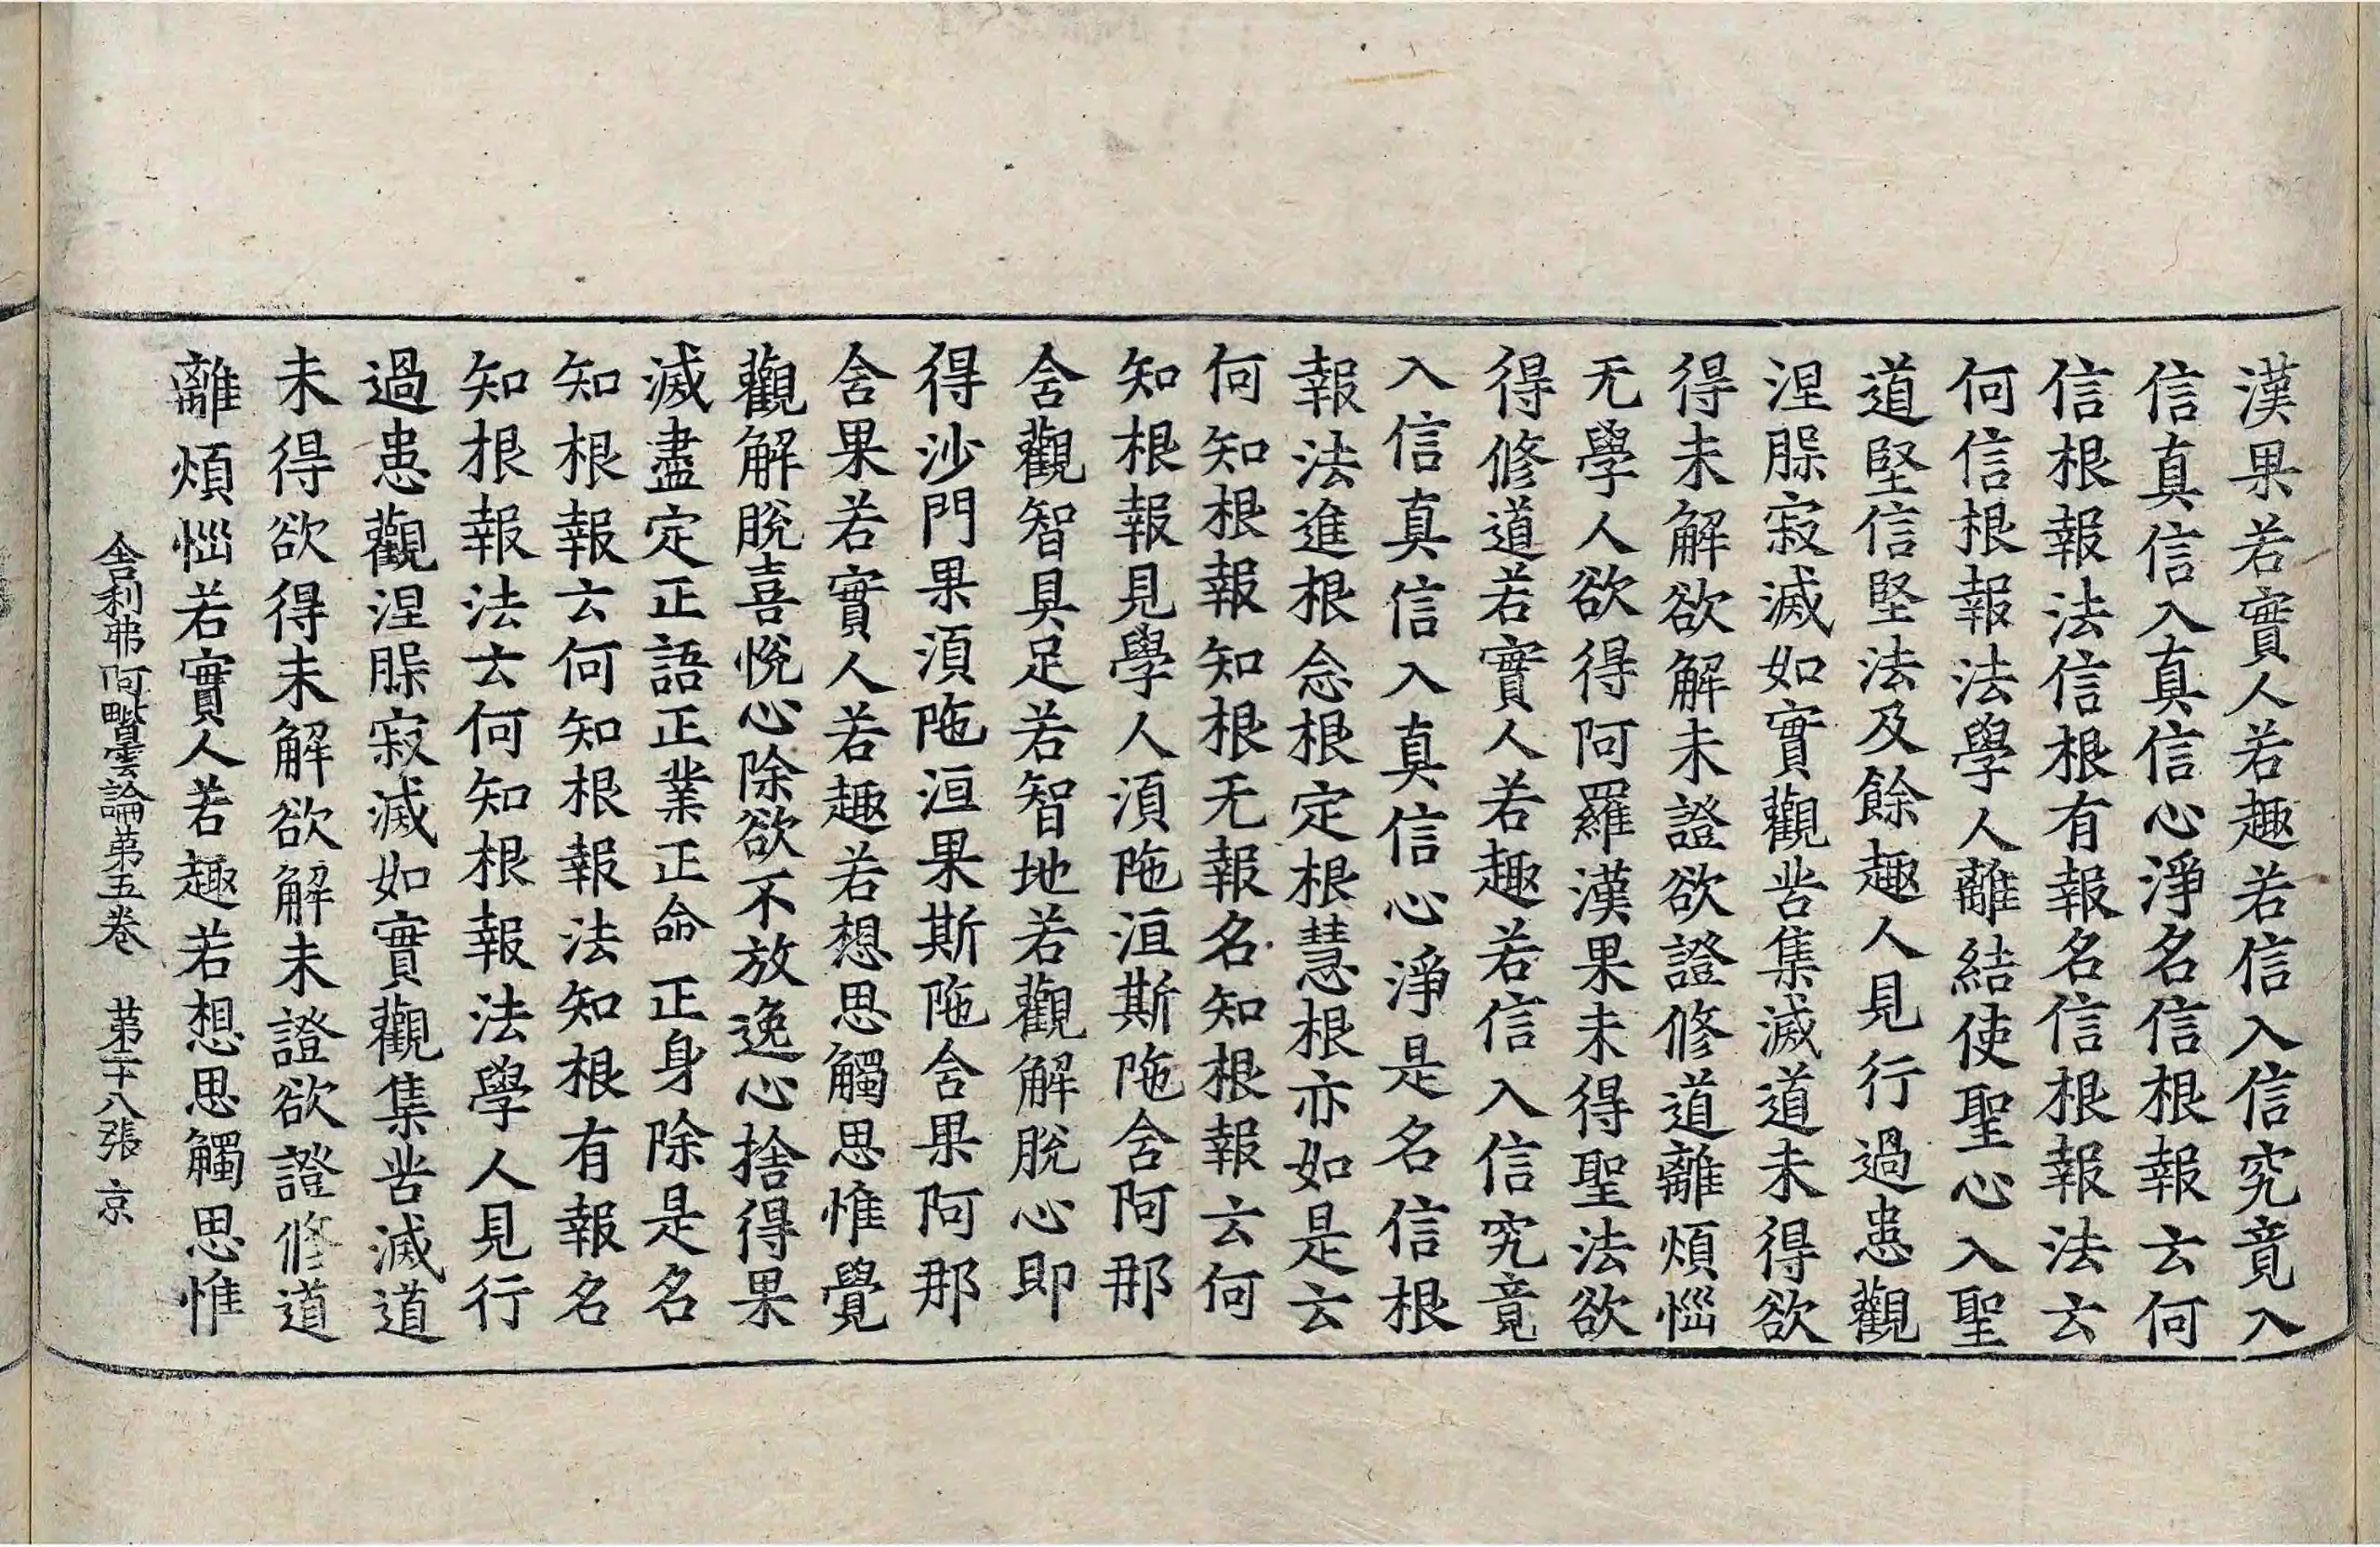 漢果若實人若趣若信入信究竟入
信真信入真信心淨名信根報云何
信根報法信根有報名信根報法云
何信根報法學人離結使聖心入聖
道堅信堅法及餘趣人見行過患觀
涅槃寂滅如實觀苦集滅道未得欲
得未解欲解未證欲證修道離煩惱
无學人欲得阿羅漢果未得聖法欲
得修道若實人若趣若信入信究竟
入信真信入真信心淨是名信根
報法進根念根定根慧根亦如是云
何知根報知根无報名知根報云何
知根報見學人湏陁洹斯陁含阿那
含觀智具足若智地若觀解脫心即
得沙門果湏陁洹果斯陁含果阿那
含果若實人若趣若想思觸思惟覺
觀解脫喜悅心除欲不放逸心捨得果
滅盡定正語正業正命正身除是名
知根報云何知根報法知根有報名
知根報法云何知根報法學人見行
過患觀涅槃寂滅如實觀集苦滅道
未得欲得未解欲解未證欲證修道
離煩惱若實人若趣若想思觸思惟
舍利弗阿毗曇論第五卷 第二十八張 京